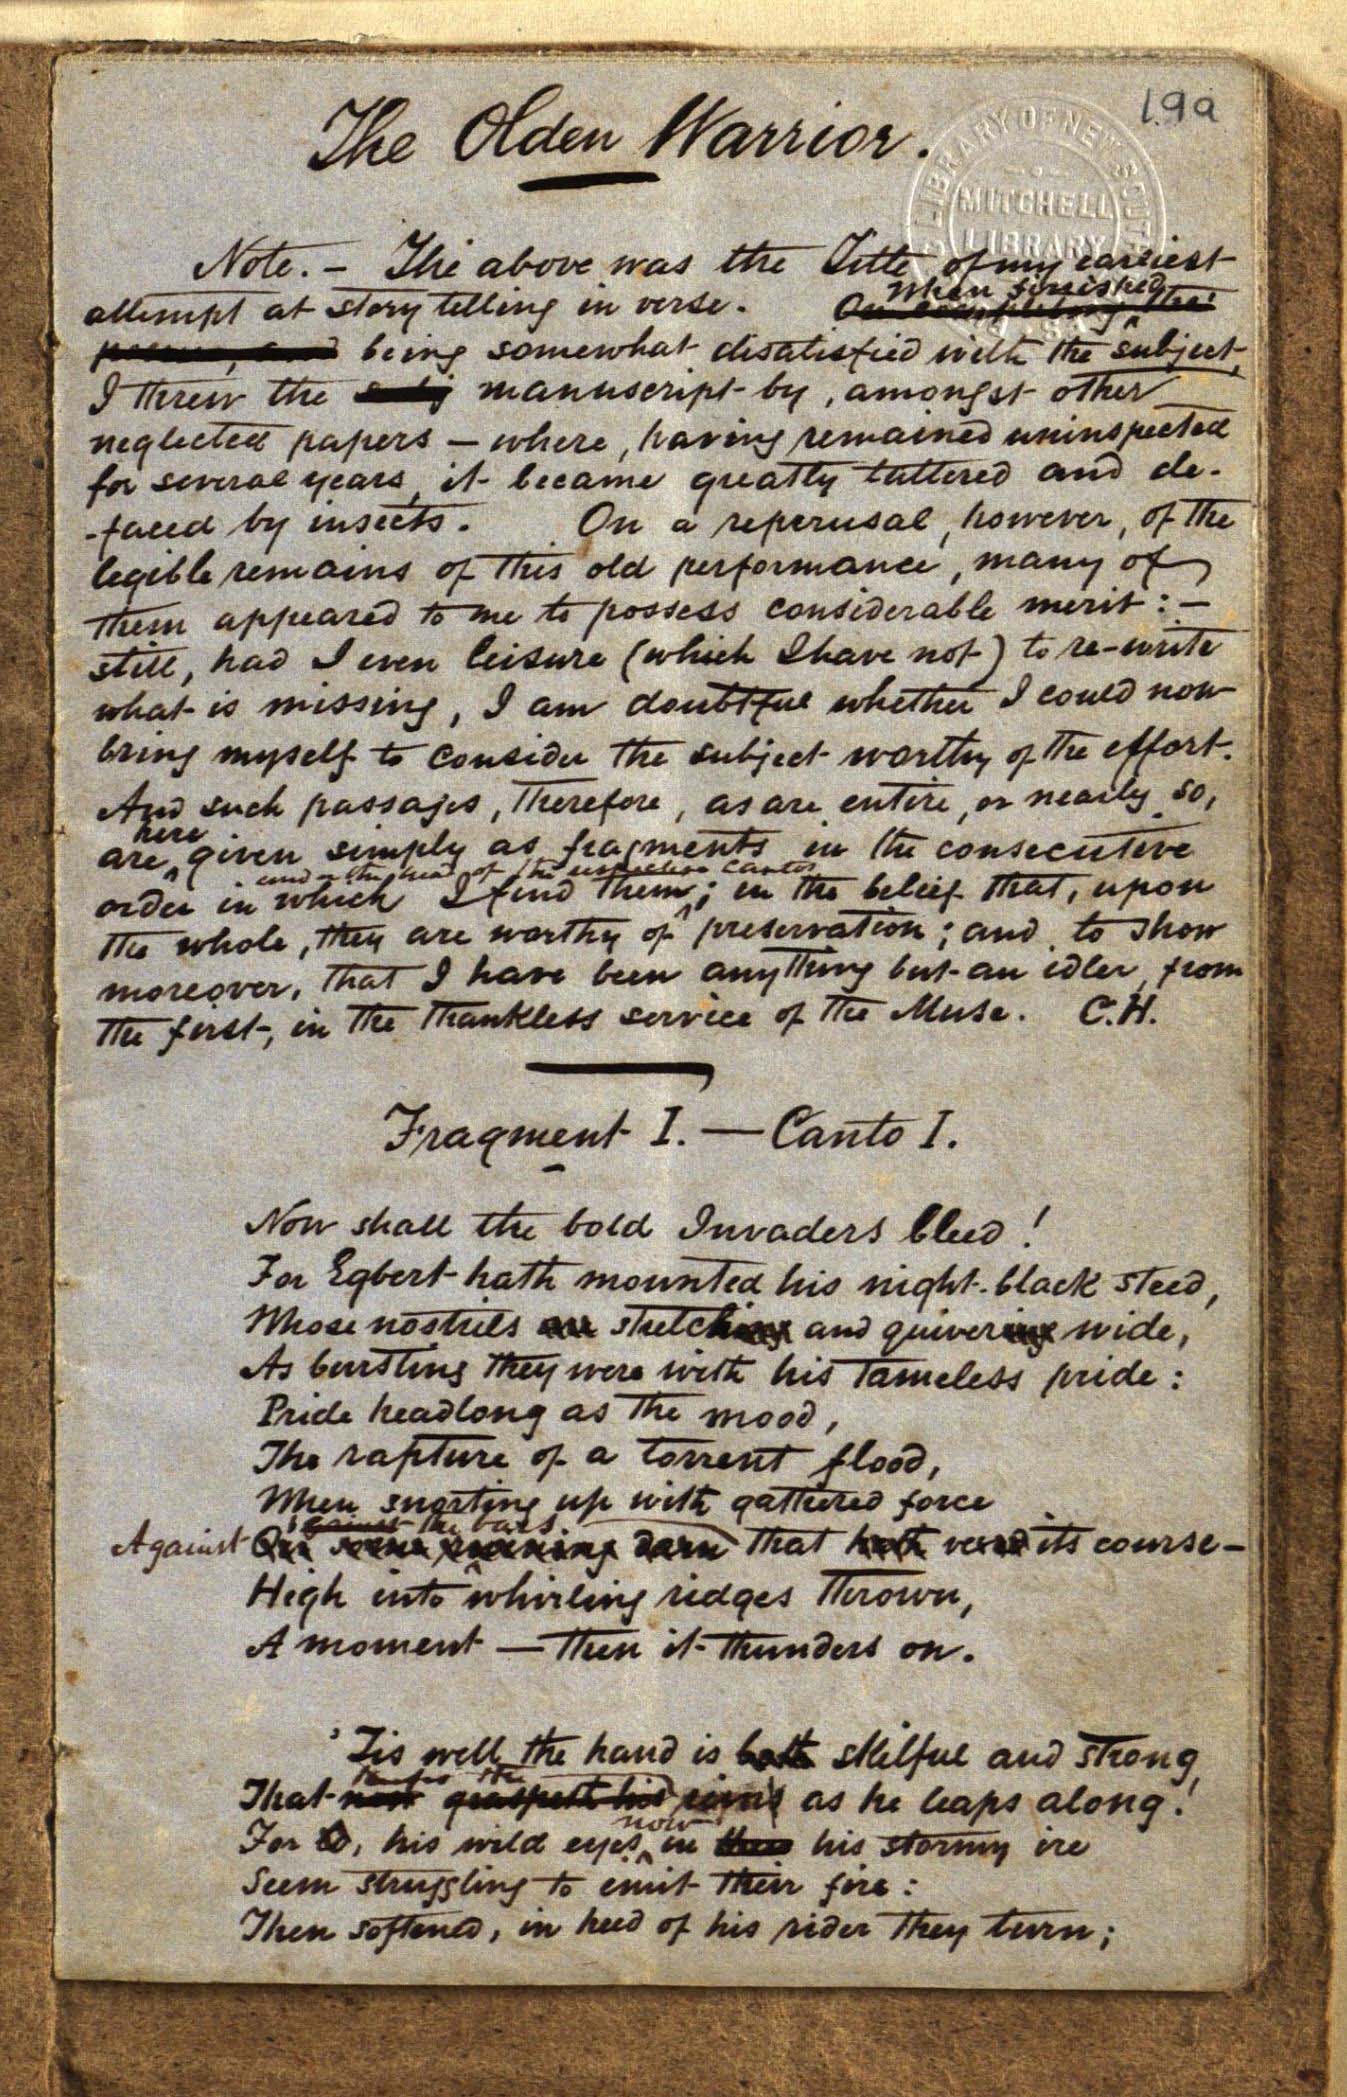 199
The Olden Warrior.
LIBRARY OF NEW SOUTH
MITCHELL
LIBRARY
Note. - The above was the Title of my earliest
When finished,
attempt at story telling in verse. On completing the
poem, and being somewhat disatisfied with the subject,
I threw the subj manuscript by, amongst other
neglected papers - where, having remained uninspected
for several years, it became greatly tattered and de-
-faced by insects. On a reperusal, however, of the
legible remains of this old performance, many of
them appeared to me to possess considerable merit: -
still, had I even leisure (which I have not) to re-write
what is missing, I am doubtful whether I could now
bring myself to consider the subject worthy of the effort.
And such passages, therefore, as are entire, or nearly so,
here
are given simply as fragments in the consecutive
and at the head of the respective Cantos
order in which I find them; in the belief that, upon
the whole, they are worthy of preservation; and to show
moreover, that I have been anything but an idler, from
the first, in the thankless service of the Muse. C.H.
Fragment I. — Canto I.
Now shall the bold Invaders bleed!
For Egbert hath mounted his night-black steed,
Whose nostrils are stretching and quivering wide,
As bursting they were with his tameless pride:
Pride headlong as the mood,
The rapture of a torrent flood,
When snorting up with gathered force
against the bars
Against On some running darn that hath its course—
High into whirling ridges thrown,
A moment — then it thunders on.
'Tis well the hand is both skilful and strong,
the
That now graspeth his reins as he leaps along!
now
For lo, his wild eyes in his stormy ire
Seem struggling to emit their fire:
Then softened, in heed of his rider they turn;